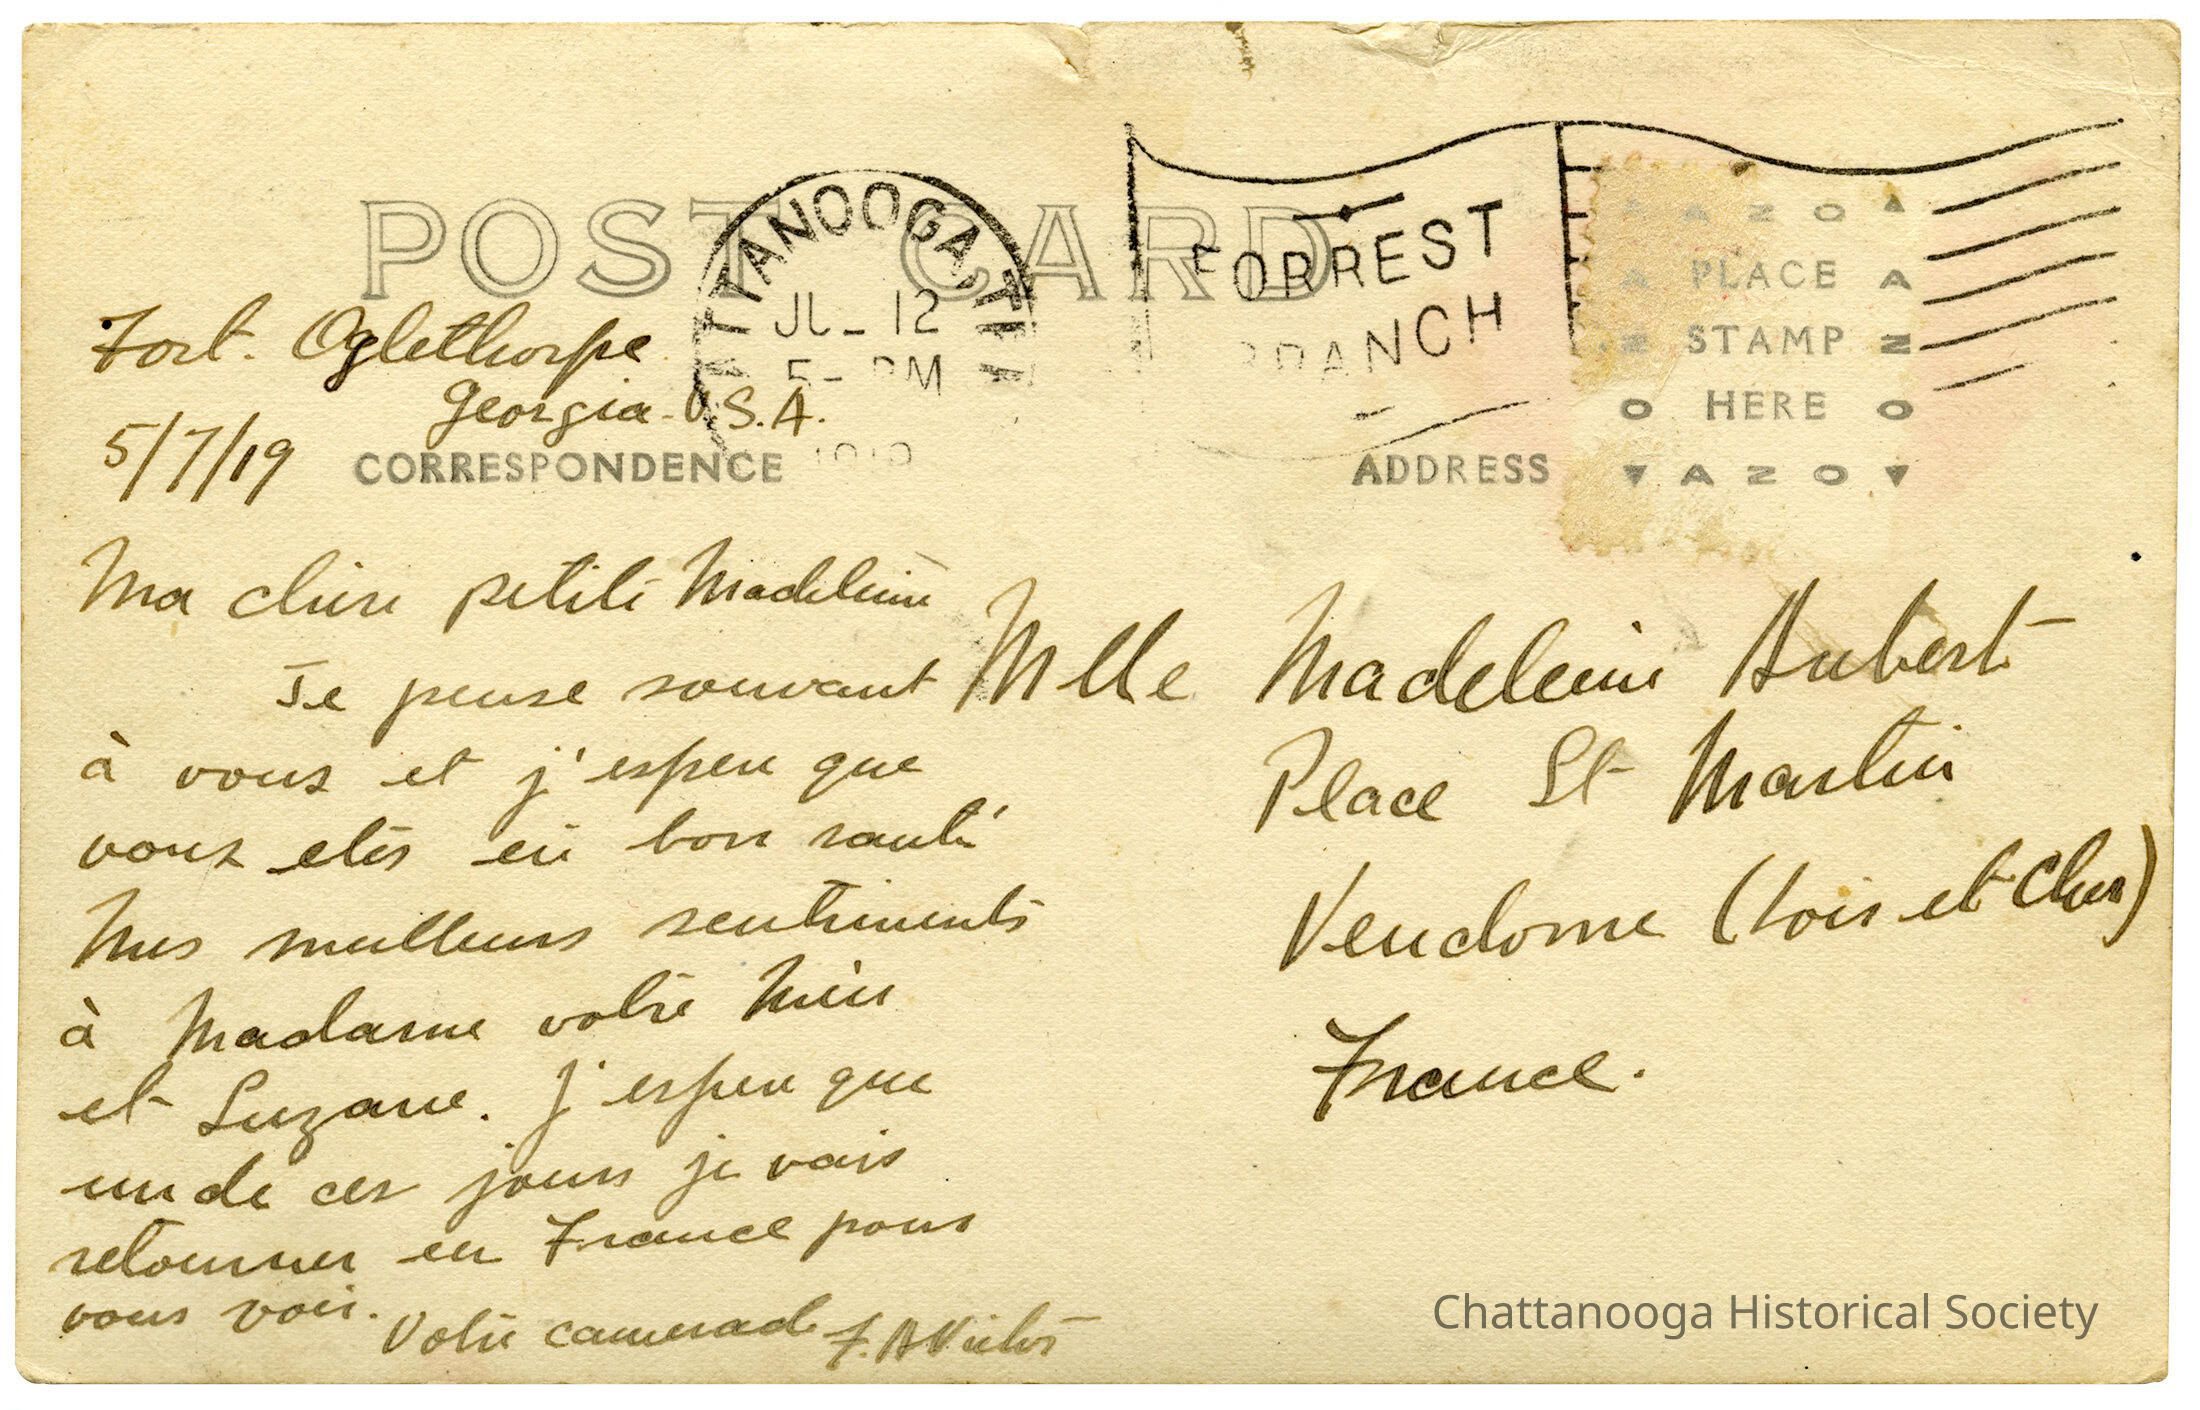 POST CARD
TTANOOGA, T
JUL 12
5- PM
1919
FORREST
BRANCH
AZO
PLACE
STAMP
HERE
AZO
Fort. Oglethorpe
Georgia. U.S.A.
5/7/19
CORRESPONDENCE
ADDRESS
Ma chère petite Madeleine
Je pense souvant
à vous et j'espere que
vous etes en bon santé
Mes meilleurs sentiments
à Madame votre Mère
et Suzane. J'espere que
un de ces jours je vais
retourner en France pour
vous voir.
Votre camerade F. A
Mlle Madeleine Hubert
Place St Martin
Vendome (Loir et Cher)
France.
Chattanooga Historical Society